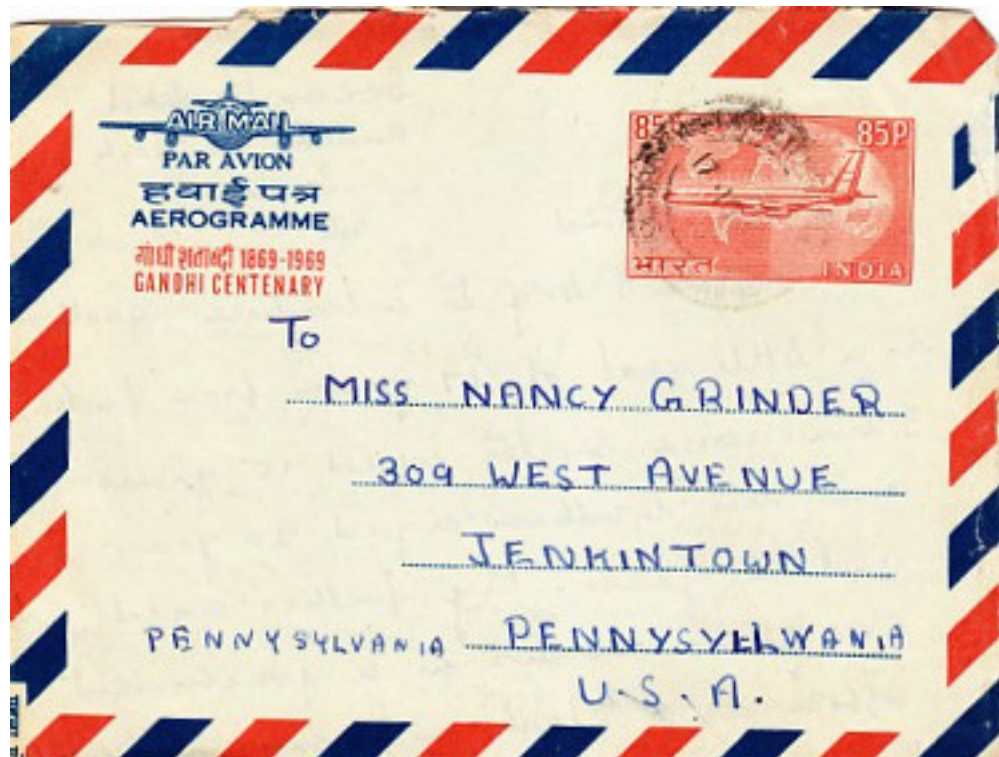 AIR MAIL
PAR AVION
हवाई पत्र
AEROGRAMME
गांधी शताब्दी 1869-1969
GANDHI CENTENARY
85P
85P
भारत INDIA
To
MISS NANCY GRINDER
309 WEST AVENUE
JENKINTOWN
PENNYSYLVANIA PENNYSYLLWANIA
U.S.A.